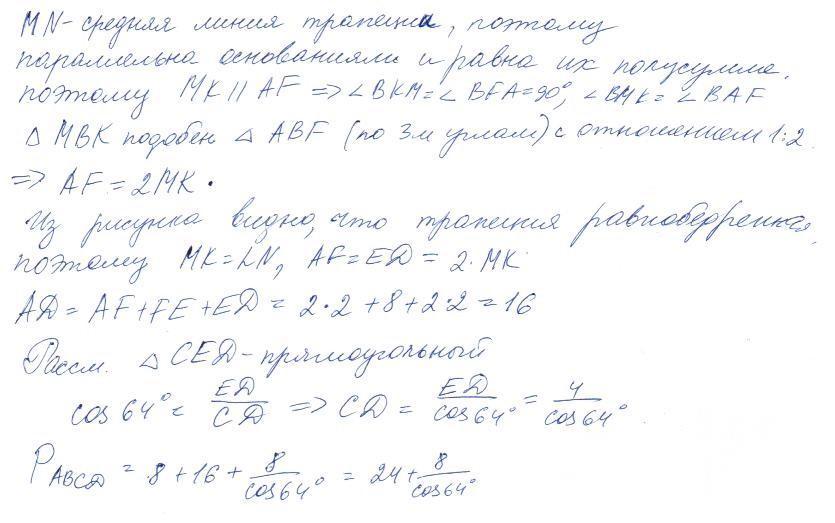 MN - средняя линия трапеции, поэтому
параллельна основаниям и равна их полусумме.
поэтому MK || AF => ∠BKM = ∠BFA = 90°, ∠BMK = ∠BAF
△ MBK подобен △ ABF (по 3м углам) с отношением 1:2
=> AF = 2MK.
Из рисунка видно, что трапеция равнобедренная,
поэтому MK = LN, AF = ED = 2·MK
AD = AF + FE + ED = 2·2 + 8 + 2·2 = 16
Рассм. △ CED - прямоугольный
cos 64° = ED/CD => CD = ED/cos 64° = 4/cos 64°
P ABCD = 8 + 16 + 8/cos 64° = 24 + 8/cos 64°